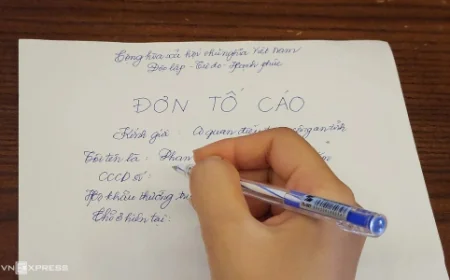 Cộng hòa xã hội chủ nghĩa Việt Nam
Độc lập - Tự do - Hạnh phúc
ĐƠN TỐ CÁO
Kính gửi: Cơ quan điều tra công an tỉnh
Tôi tên là: Phan
CCCD số:
Hộ khẩu thường
Chỗ ở hiện tại:
VNEXPRESS